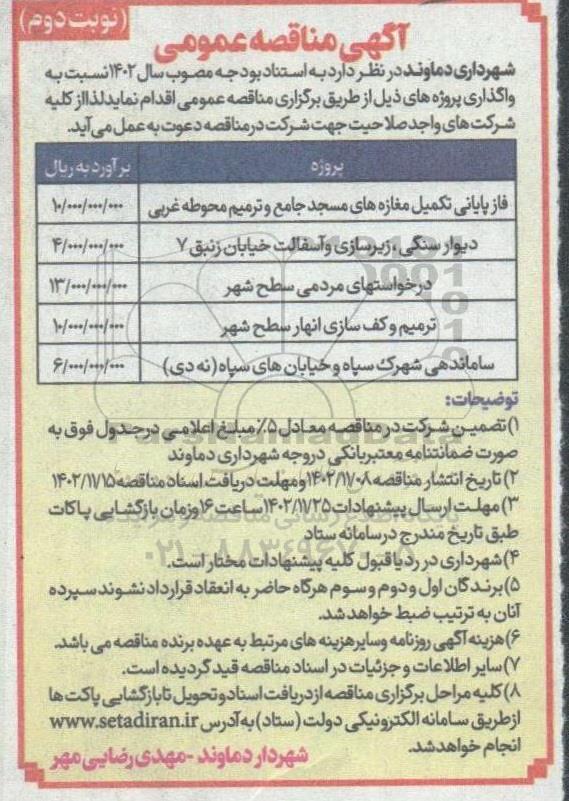 (نوبت دوم)
آگهی مناقصه عمومی
شهرداری دماوند در نظر دارد به استناد بودجه مصوب سال ۱۴۰۲ نسبت به
واگذاری پروژه های ذیل از طریق برگزاری مناقصه عمومی اقدام نماید لذا از کلیه
شرکت های واجد صلاحیت جهت شرکت در مناقصه دعوت به عمل می آید.
پروژه برآورد به ریال
فاز پایانی تکمیل مغازه های مسجد جامع و ترمیم محوطه غربی ۱۰/۰۰۰/۰۰۰/۰۰۰
دیوار سنگی، زیرسازی وآسفالت خیابان زنبق ۷ ۴/۰۰۰/۰۰۰/۰۰۰
درخواستهای مردمی سطح شهر ۱۳/۰۰۰/۰۰۰/۰۰۰
ترمیم و کف سازی انهار سطح شهر ۱۰/۰۰۰/۰۰۰/۰۰۰
ساماندهی شهرک سپاه و خیابان های سپاه (نه دی) ۶/۰۰۰/۰۰۰/۰۰۰
توضیحات:
۱) تضمین شرکت در مناقصه معادل ۵٪ مبلغ اعلامی درجدول فوق به
صورت ضمانتنامه معتبربانکی دروجه شهرداری دماوند
۲) تاریخ انتشار مناقصه ۱۴۰۲/۱۱/۰۸ ومهلت دریافت اسناد مناقصه ۱۴۰۲/۱۱/۱۵
۳) مهلت ارسال پیشنهادات ۱۴۰۲/۱۱/۲۵ ساعت ۱۶ وزمان بازگشایی پاکات
طبق تاریخ مندرج درسامانه ستاد
۴) شهرداری در رد یا قبول کلیه پیشنهادات مختار است.
۵) برندگان اول و دوم و سوم هرگاه حاضر به انعقاد قرارداد نشوند سپرده
آنان به ترتیب ضبط خواهد شد.
۶) هزینه آگهی روزنامه وسایرهزینه های مرتبط به عهده برنده مناقصه می باشد.
۷) سایر اطلاعات و جزئیات در اسناد مناقصه قید گردیده است.
۸) کلیه مراحل برگزاری مناقصه از دریافت اسناد و تحویل تا بازگشایی پاکت ها
ازطریق سامانه الکترونیکی دولت (ستاد) به آدرس www.setadiran.ir
انجام خواهدشد.
شهردار دماوند -مهدی رضایی مهر